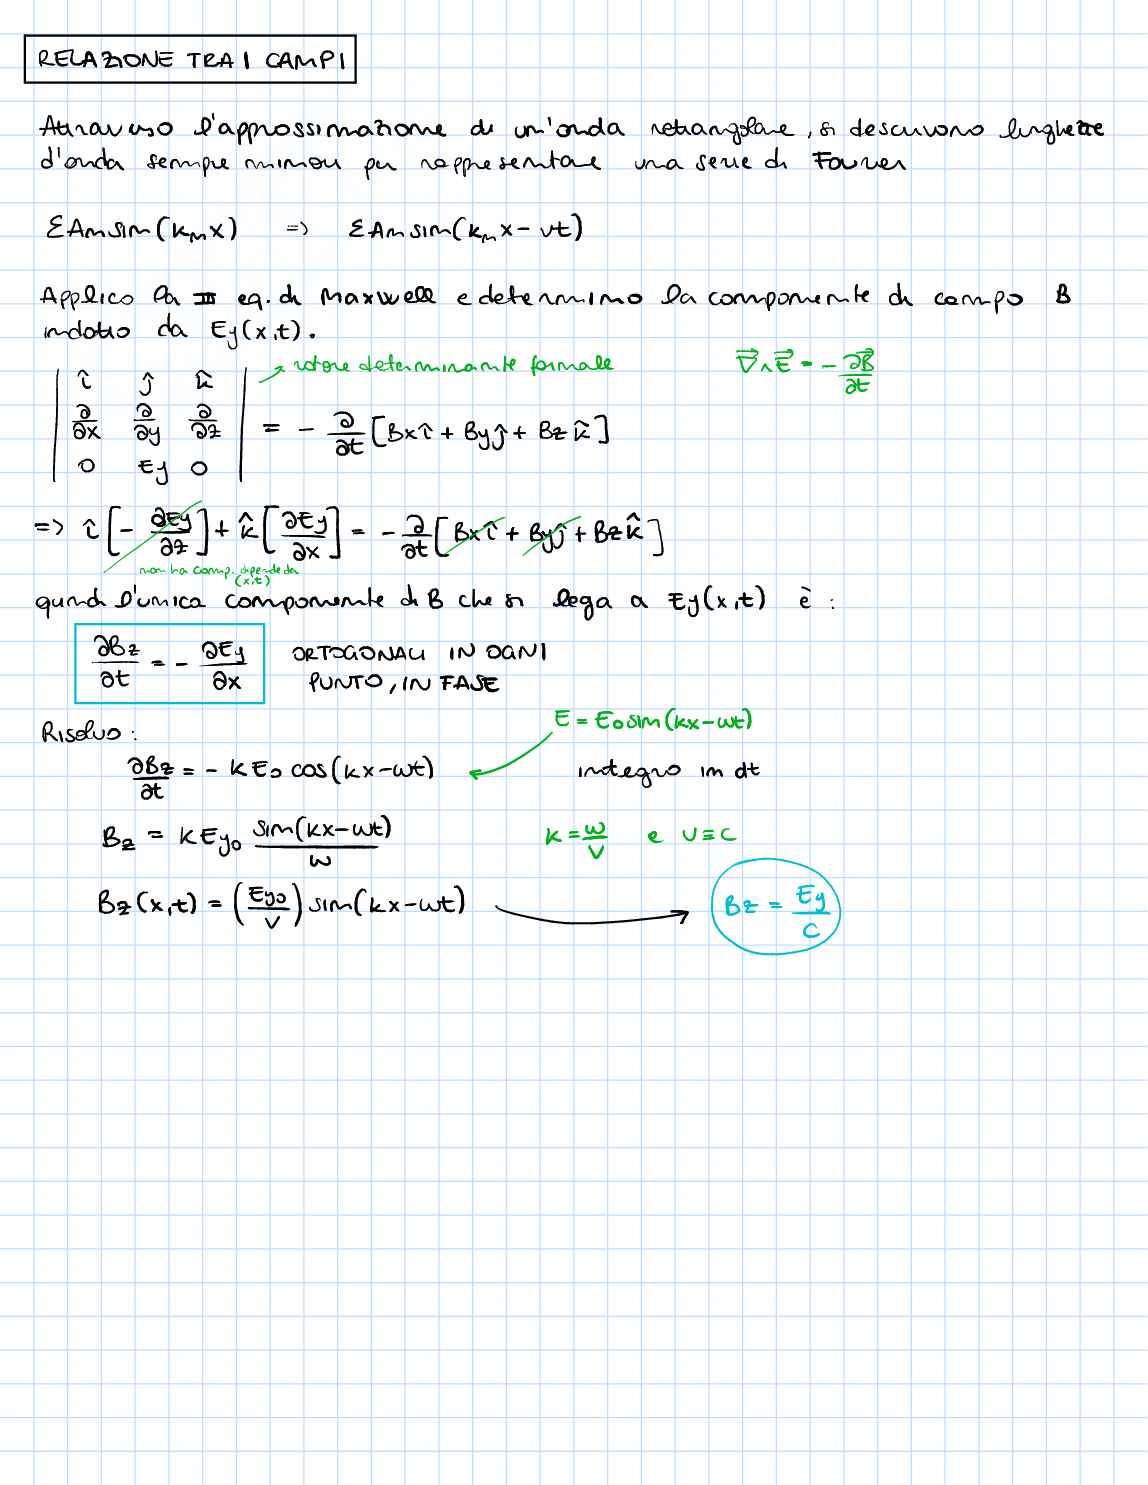 RELAZIONE TRA I CAMPI
Attraverso l'approssimazione di un'onda rettangolare, si descrivono lunghezze
d'onda sempre minori per rappresentare una serie di Fourier
ΣAn sin(kₙx) => ΣAn sin(kₙx - vt)
Applico la III eq. di Maxwell e determino la componente di campo B
indotto da Ey(x,t).
→ rotore determinante formale
∇⃗ ∧ E⃗ = - ∂B⃗/∂t
| î ĵ k̂ |
| ∂/∂x ∂/∂y ∂/∂z | = - ∂/∂t [Bx î + By ĵ + Bz k̂]
| 0 Ey 0 |
=> î [- ∂Ey/∂z] + k̂ [∂Ey/∂x] = - ∂/∂t [Bx î + By ĵ + Bz k̂]
non ha comp. dipende da
(x,t)
quindi l'unica componente di B che si lega a Ey(x,t) è :
∂Bz/∂t = - ∂Ey/∂x ORTOGONALI IN OGNI
PUNTO, IN FASE
Risolvo : E = E₀ sin(kx - wt)
∂Bz/∂t = - k E₀ cos(kx - wt) ← integro in dt
Bz = k Ey₀ sin(kx - wt)/w k = w/v e v ≡ c
Bz(x,t) = (Ey₀/v) sin(kx - wt) → Bz = Ey/c